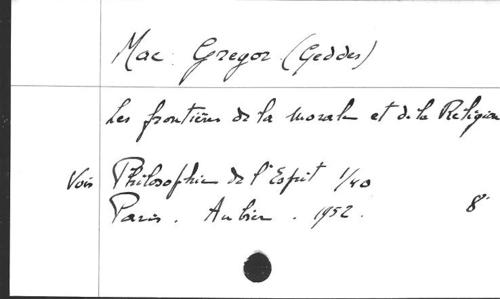 Mac Gregor (Geddes)
Les frontières de la morale et de la Religion
Vois Philosophie de l'Esprit 1/40
Paris. Aubier. 1952. 8°